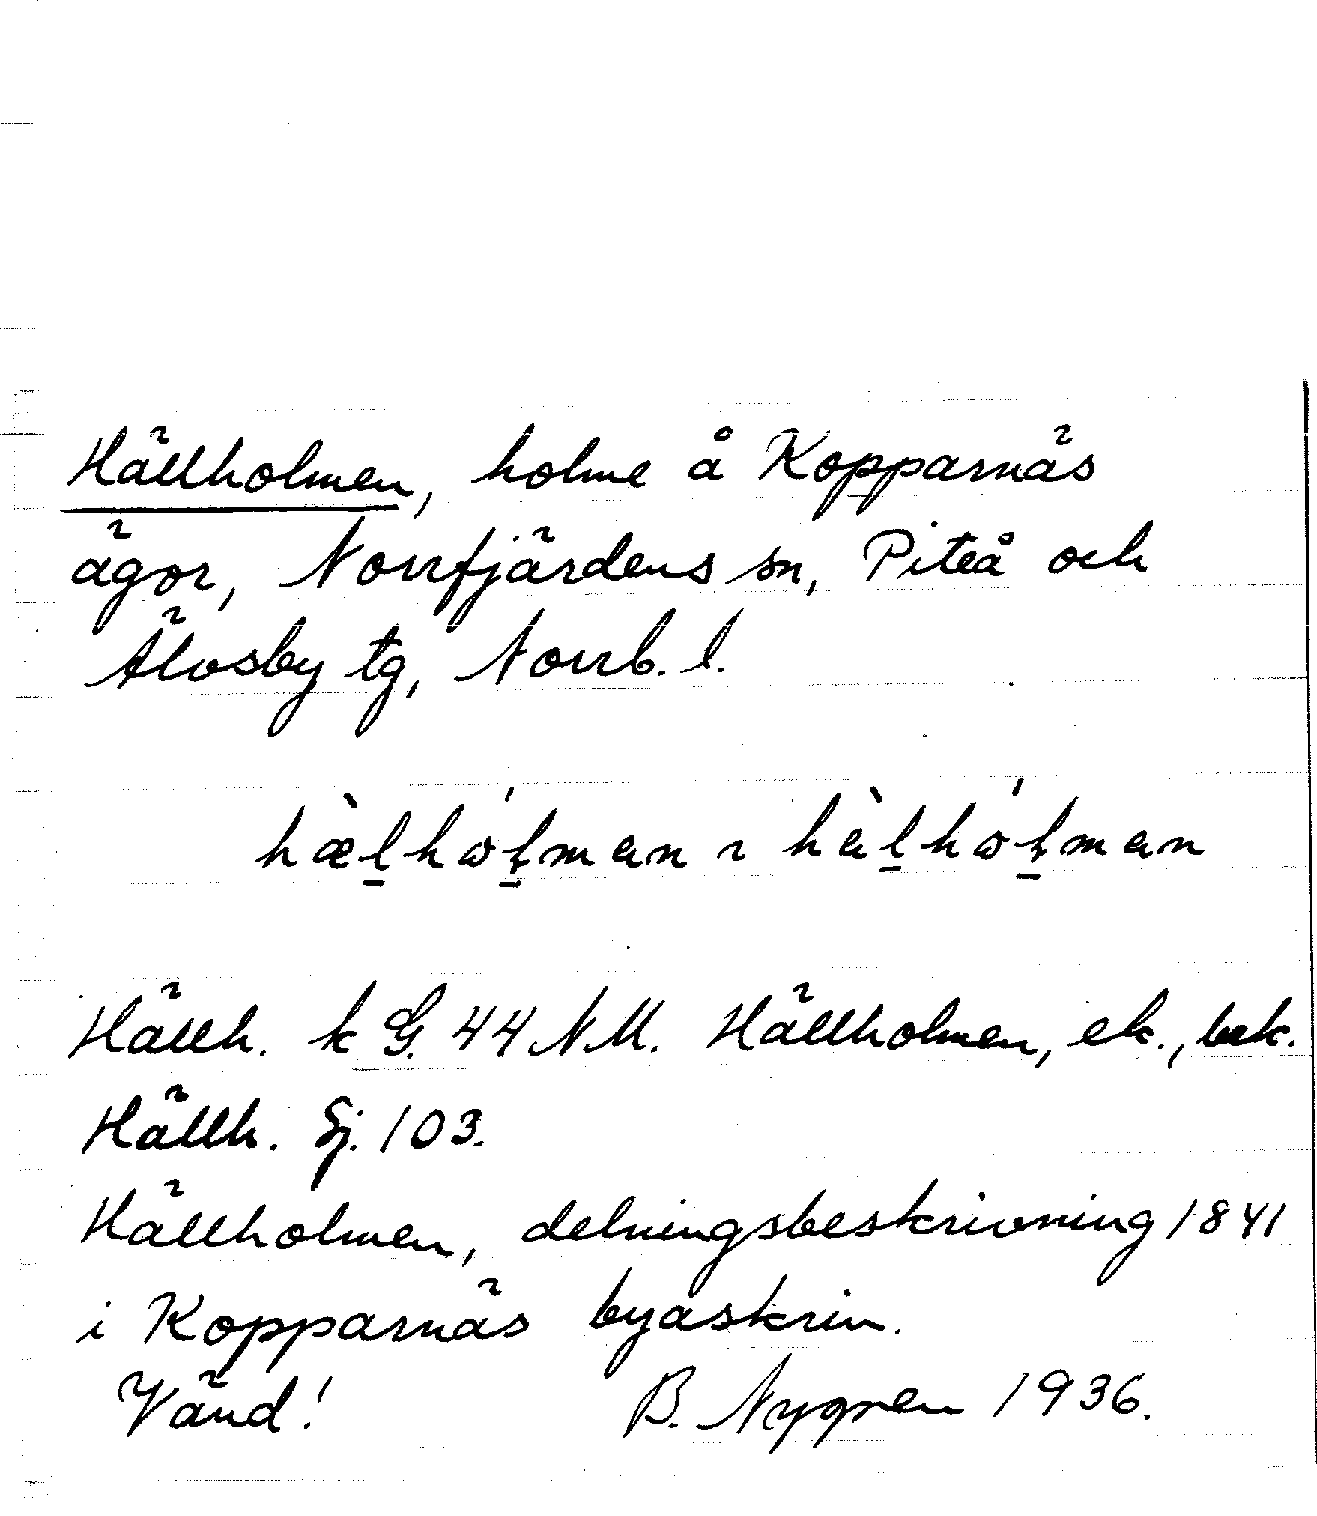 Hällholmen, holme å Kopparnäs
ägor, Norrfjärdens sn, Piteå och
Älvsby tg, Norrb. l.
hæ̀lhώļman ~ hàlhώļman
Hällh. k G. 44 NM. Hällholmen, ek., bek.
Hällh. Sj. 103.
Hällholmen, delningsbeskrivning 1841
i Kopparnäs byaskrin.
Vänd! B. Nygren 1936.